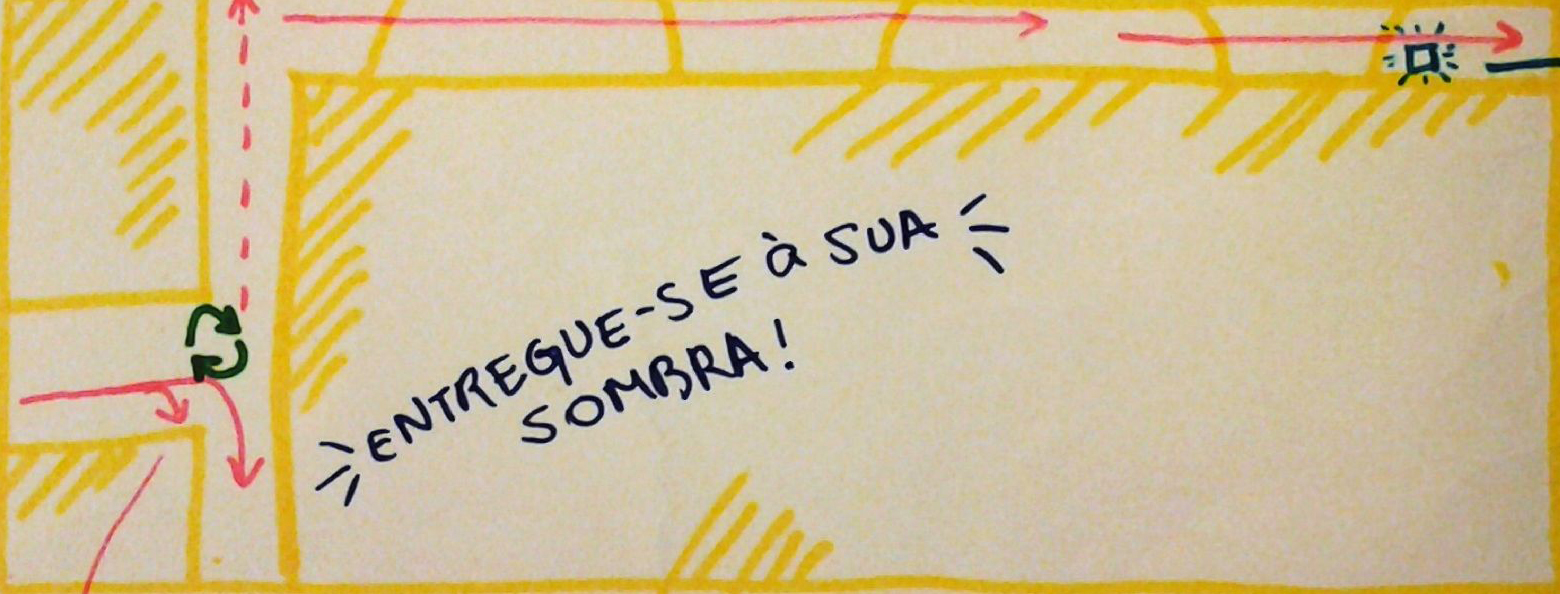 ENTREGUE-SE à SUA
SOMBRA!